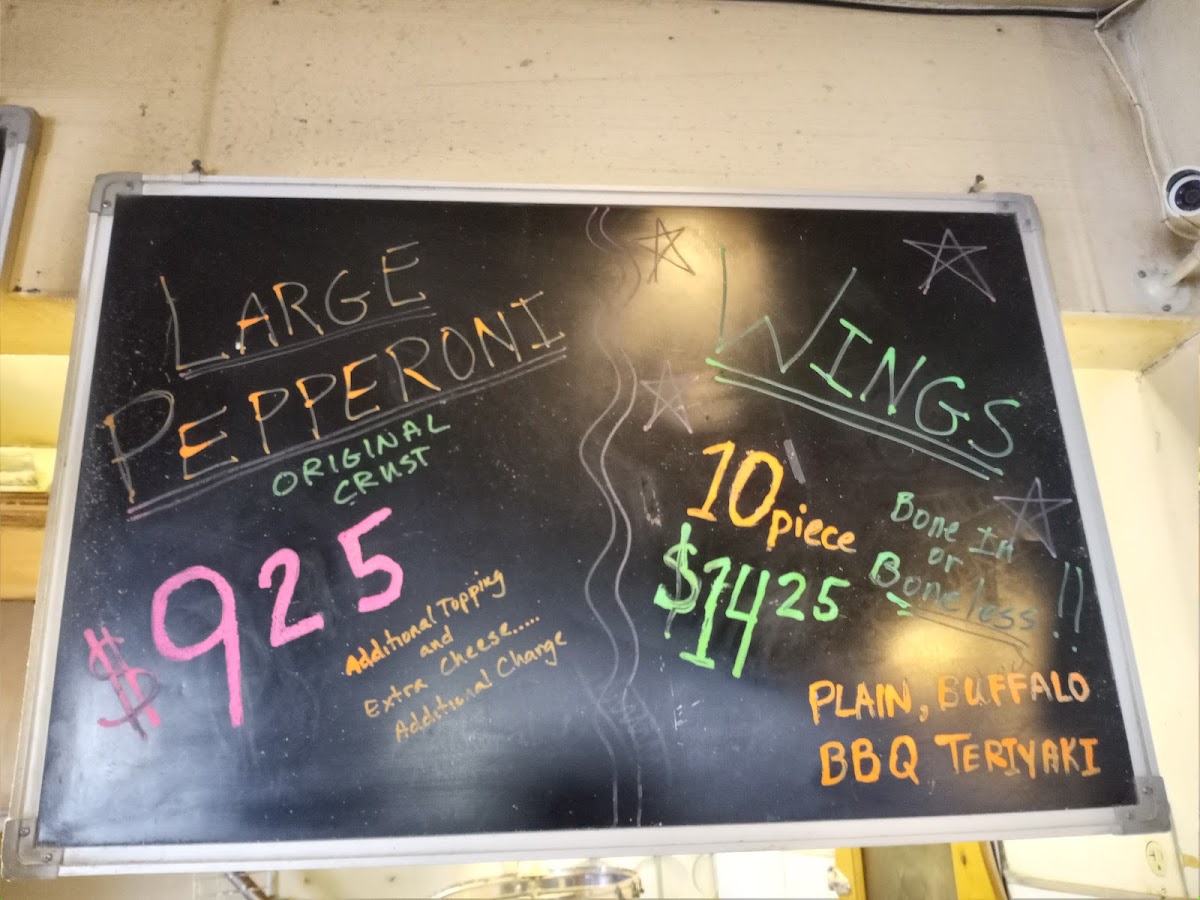 LARGE
PEPPERONI
ORIGINAL
CRUST
$925
Additional Topping
and
Extra Cheese.....
Additional Charge
WINGS
10 piece
$1425
Bone In
or
Boneless!!
PLAIN, BUFFALO
BBQ TERIYAKI